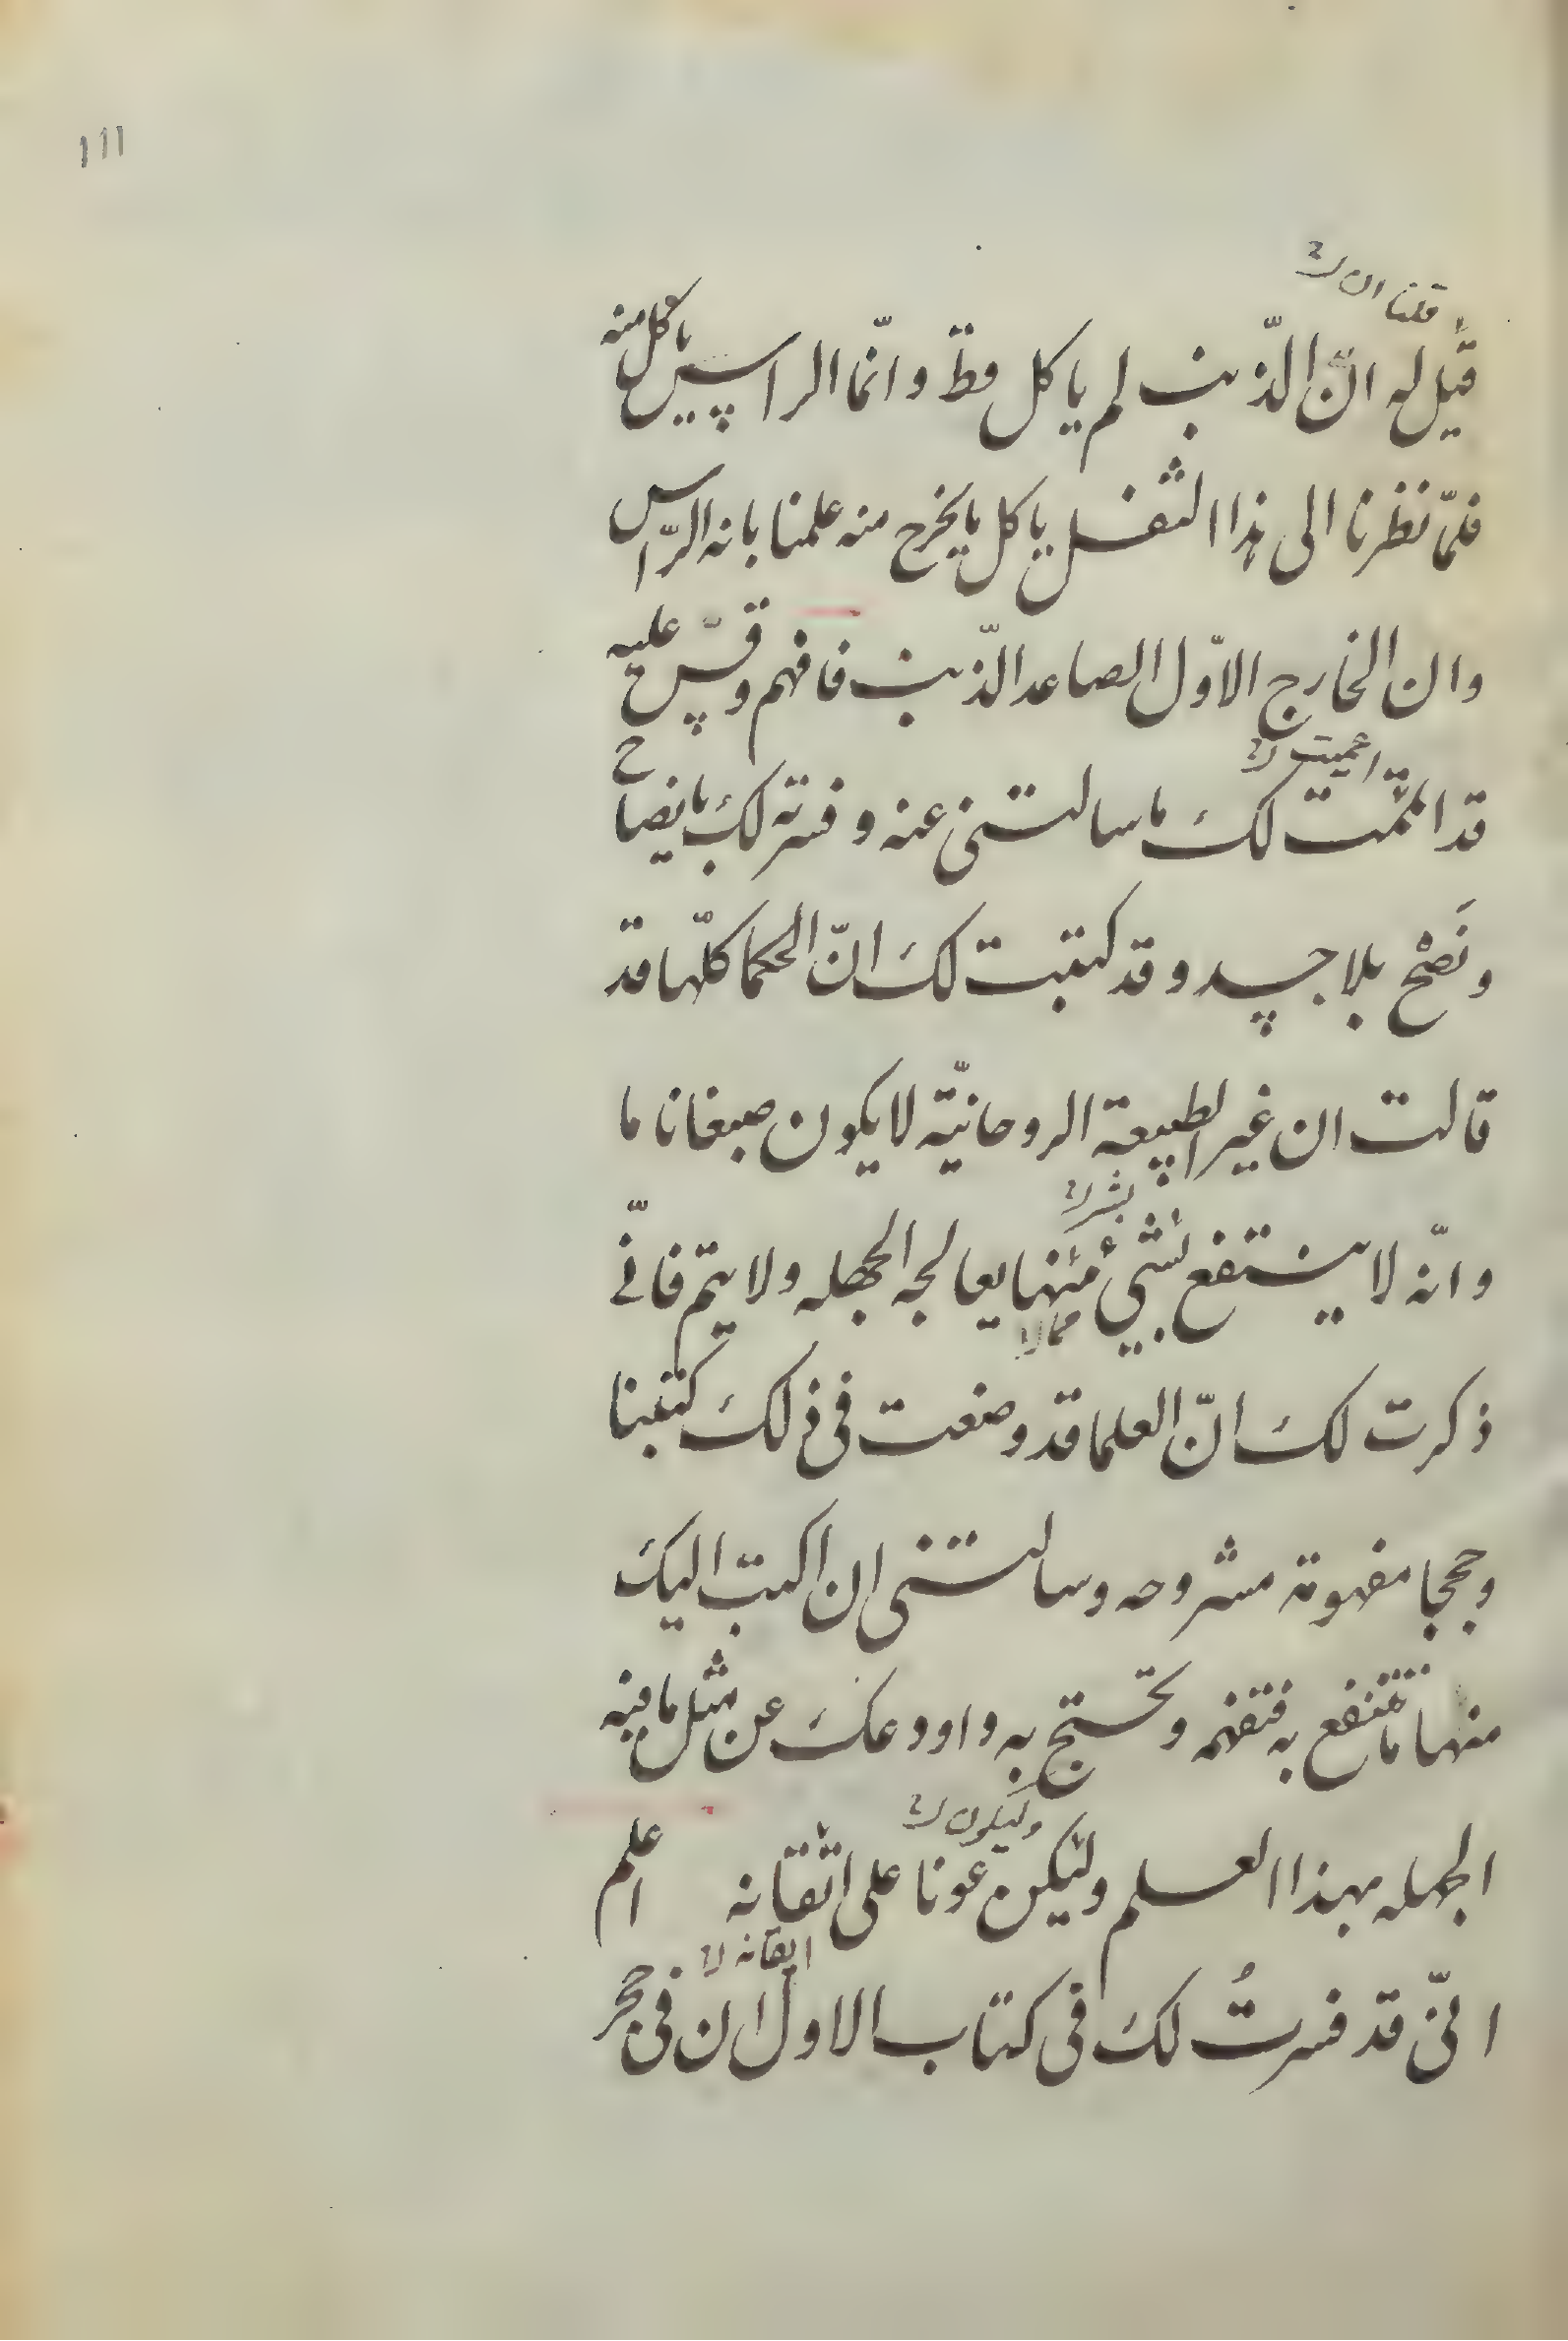 ١١١
قلنا ان
قيل له انّ الذّنب لم ياكل قطّ وانّما الراس ياكل منه
فلمّا نظرنا الى هذا الثفل ياكل ما يخرج منه علمنا بانه الرّاس
وان الخارج الاوّل الصاعد الذّنب فافهم وقس عليه
قد اتممت لك ما سالتنى عنه وفسرته لك بايضاح
ونصح بلا حسد وقد كتبت لك انّ الحكما كلّها قد
قالت ان غير الطبيعة الروحانيّه لا يكون صبغا ناما
وانّه لا ينتفع بشىء منها يعالجه الجهله ولا يتم فانّى
ذكرت لك انّ العلما قد وضعت فى ذلك كتبنا
وحججا مفهومة مشروحه وسالتنى ان اكتب اليك
منها ما تنتفع به فتفهمه وتحتج به واودعك عن مثل ما فيه
وليكون
الجهله بهذا العلم وليكن عونا على اتقانه اعلم
ايقانه
انّى قد فسرتُ لك فى كتاب الاول ان فى حجر